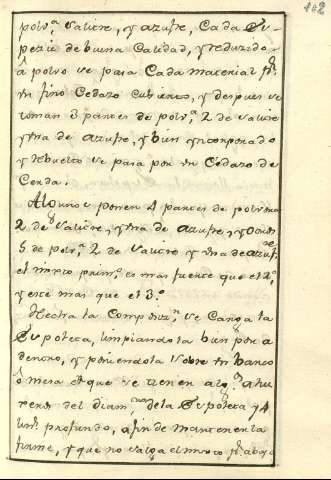 182
polv.ª Salitre, y azufre, Cada Es-
pezie de buena Calidad, y reduzido
à polvo se pasa Cada material p.r
un fino Cedazo cubierto, y despues se
toman 3 partes de polv.ª 2 de Salitre
y una de azufre, y bien yncorporado
y rebuelto se pasa por un Cedazo de
Cerda.
Algunos ponen 4 partes de polvora
2 de Salitre, y una de azufre, y otros
5 de polv.ª 2 de Salitre y una de azuf.e
el mixto prim.o es mas fuerte que el 2.o
y este mas que el 3.o
Hecha la Compos.n se Carga la
Espoleta, limpiandola bien por a
dentro, y poniendola sobre un banco
ò mesa en que se tienen alg.s ahu
reros del diam.tro de la Espoleta y 4
lin.s profundo, a fin de mantenerla
firme, y que no salga el mixto p.r abajo